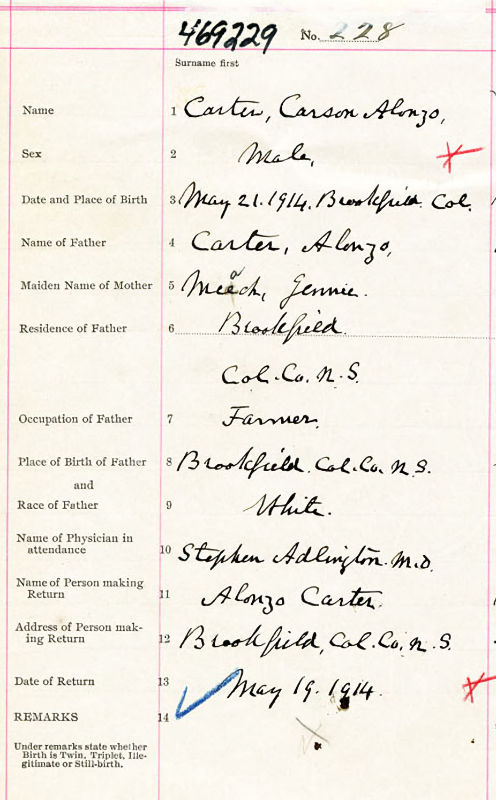 469229 No. 228
Surname first
Name 1 Carter, Carson Alonzo,
Sex 2 Male,
Date and Place of Birth 3 May 21. 1914. Brookfield. Col.
Name of Father 4 Carter, Alonzo,
Maiden Name of Mother 5 Meach, Jennie.
Residence of Father 6 Brookfield.
Col. Co. N. S.
Occupation of Father 7 Farmer.
Place of Birth of Father 8 Brookfield. Col. Co. N S.
and
Race of Father 9 White.
Name of Physician in
attendance 10 Stephen Adlington. M.D.
Name of Person making
Return 11 Alonzo Carter.
Address of Person mak-
ing Return 12 Brookfield, Col. Co. N. S.
Date of Return 13 May 19. 1914.
REMARKS 14
Under remarks state whether
Birth is Twin, Triplet, Ille-
gitimate or Still-birth.